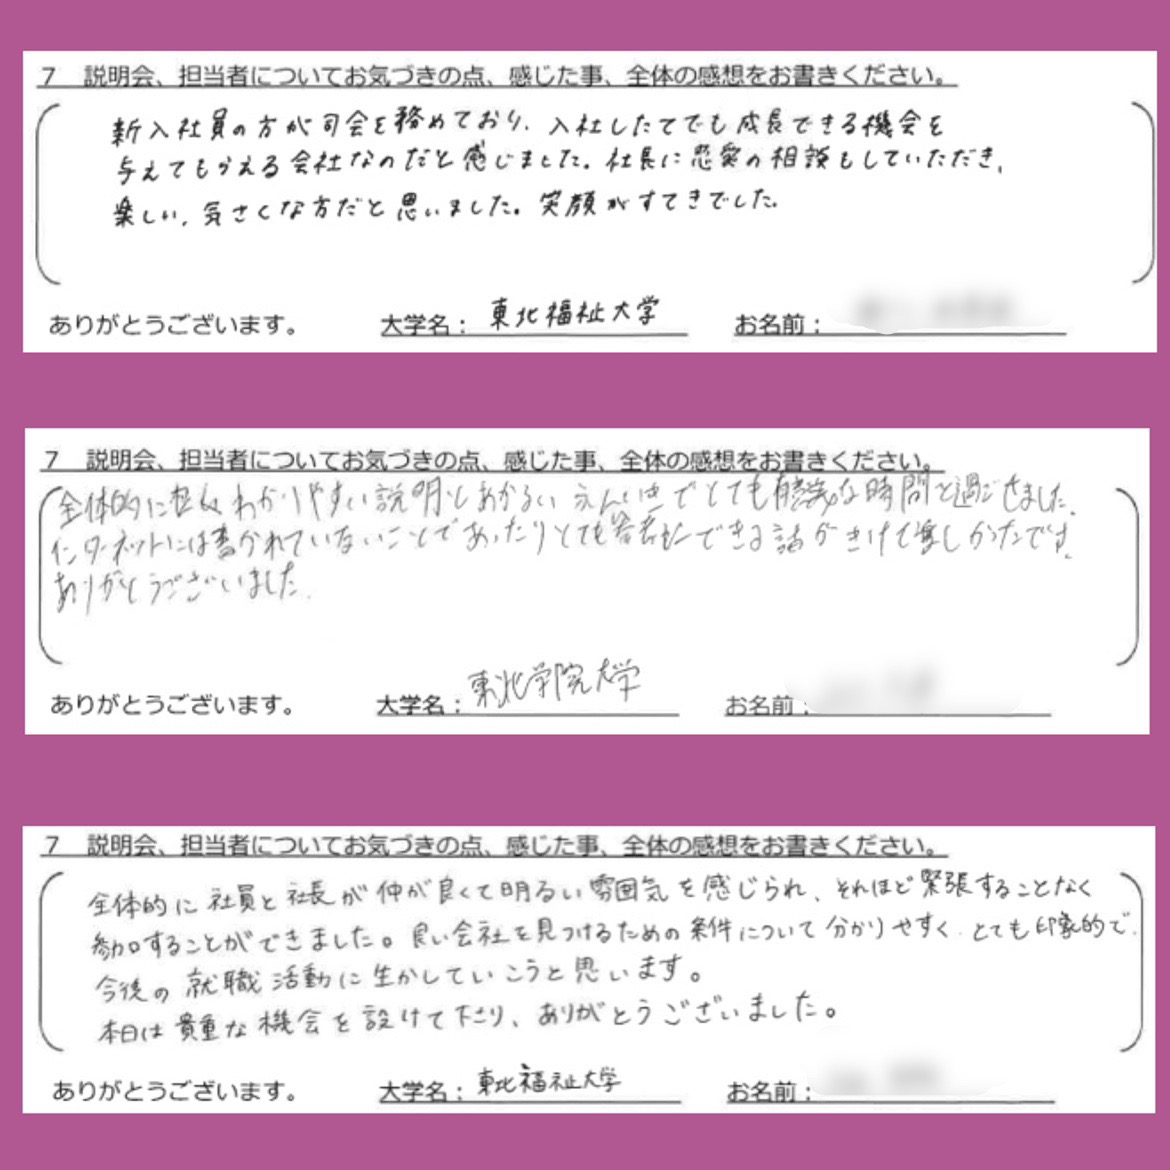 7 説明会、担当者についてお気づきの点、感じた事、全体の感想をお書きください。
新入社員の方が司会を務めており、入社したてでも成長できる機会を
与えてもらえる会社なのだと感じました。社長に恋愛の相談もしていただき、
楽しい、気さくな方だと思いました。笑顔がすてきでした。
ありがとうございます。 大学名： 東北福祉大学 お名前：
7 説明会、担当者についてお気づきの点、感じた事、全体の感想をお書きください。
全体的に わかりやすい説明 あかるい でとても有意義な時間を過ごせました。
インターネットには書かれていないことであったりとても参考にできる話がきけて嬉しかったです。
ありがとうございました。
ありがとうございます。 大学名： 東北学院大学 お名前：
7 説明会、担当者についてお気づきの点、感じた事、全体の感想をお書きください。
全体的に社員と社長が仲が良くて明るい雰囲気を感じられ、それほど緊張することなく
参加することができました。良い会社を見つけるための条件について分かりやすく、とても印象的で、
今後の就職活動に生かしていこうと思います。
本日は貴重な機会を設けて下さり、ありがとうございました。
ありがとうございます。 大学名： 東北福祉大学 お名前：